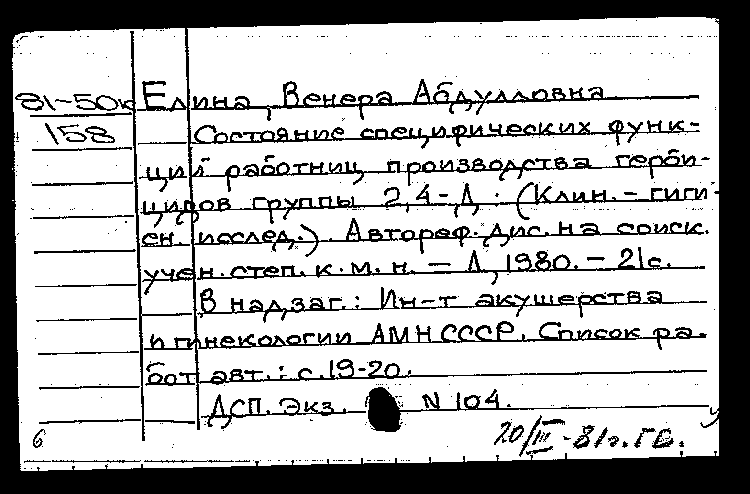 81-50к Елина, Венера Абдулловна
158 Состояние специфических функ-
ций работниц производства герби-
цидов группы 2,4-Д : (Клин. - гиги-
ен. исслед.). Автореф. дис. на соиск.
учен. степ. к. м. н. - Л, 1980. - 21с.
В надзаг.: Ин-т акушерства
и гинекологии АМН СССР. Список ра-
бот авт.: с. 19-20.
ДСП. Экз. N 104.
6 20/III-81г. Г.В.